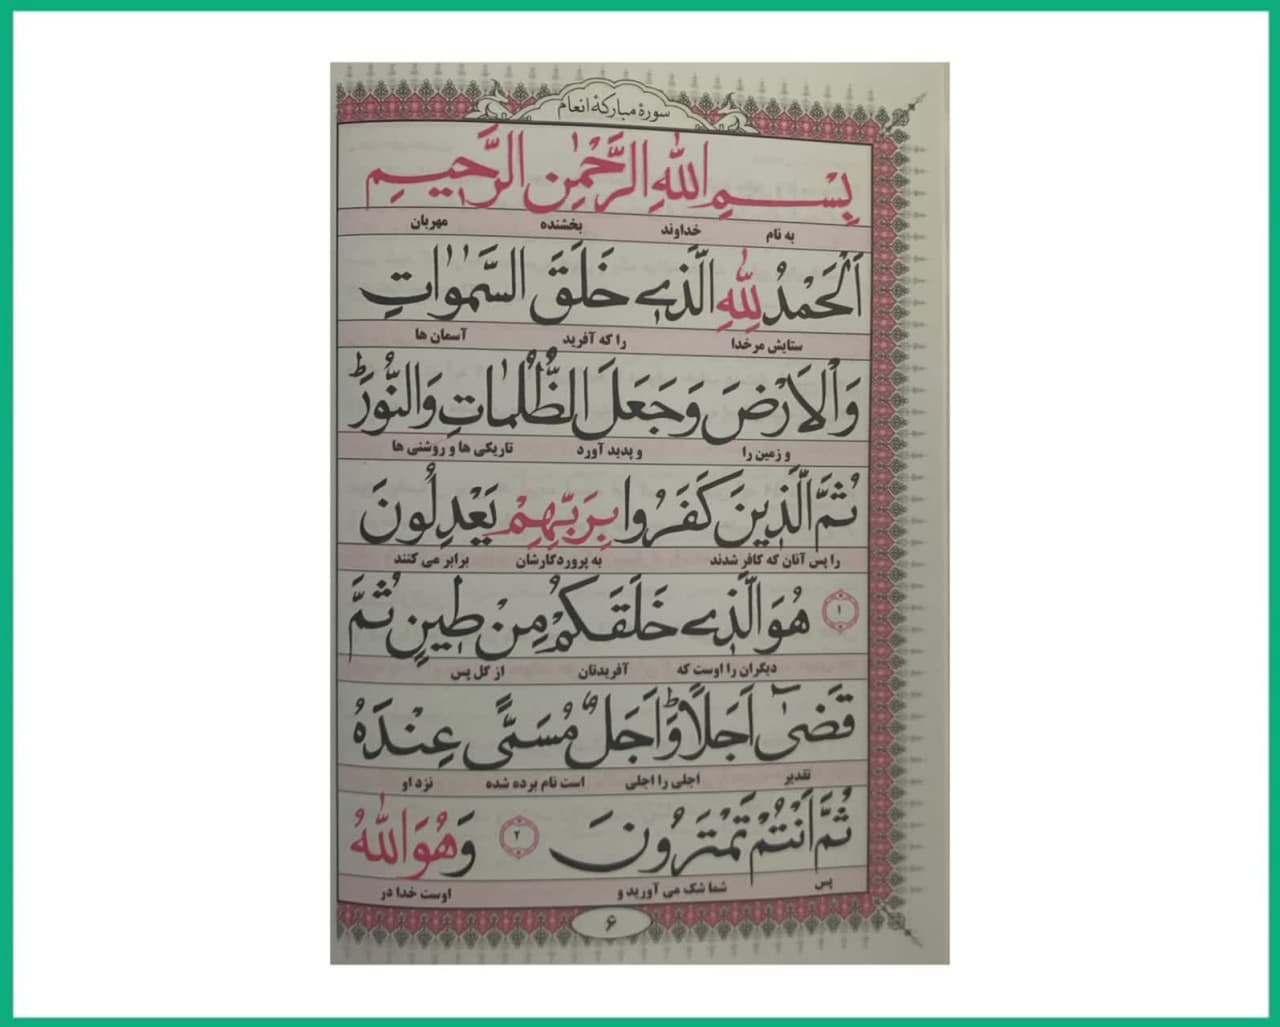 سورهٔ مبارکهٔ انعام
بِسْمِ اللهِ الرَّحْمٰنِ الرَّحيمِ
به نام خداوند بخشنده مهربان
اَلْحَمْدُ لِلّٰهِ الَّذي خَلَقَ السَّمٰوٰاتِ
ستایش مرخدا را که آفرید آسمان ها
وَالْاَرْضَ وَجَعَلَ الظُّلُمٰاتِ وَالنُّورَ ط
و زمین را و پدید آورد تاریکی ها و روشنی ها
ثُمَّ الَّذينَ كَفَرُوا بِرَبِّهِمْ يَعْدِلُونَ
را پس آنان که کافر شدند به پروردگارشان برابر می کنند
۱ هُوَ الَّذي خَلَقَكُمْ مِنْ طينٍ ثُمَّ
دیگران را اوست که آفریدتان از گل پس
قَضىٰٓ اَجَلًا ط وَاَجَلٌ مُسَمًّى عِنْدَهُ
تقدیر اجلی را اجلی است نام برده شده نزد او
ثُمَّ اَنْتُمْ تَمْتَرُونَ ۲ وَهُوَ اللهُ
پس شما شک می آورید و اوست خدا در
۶